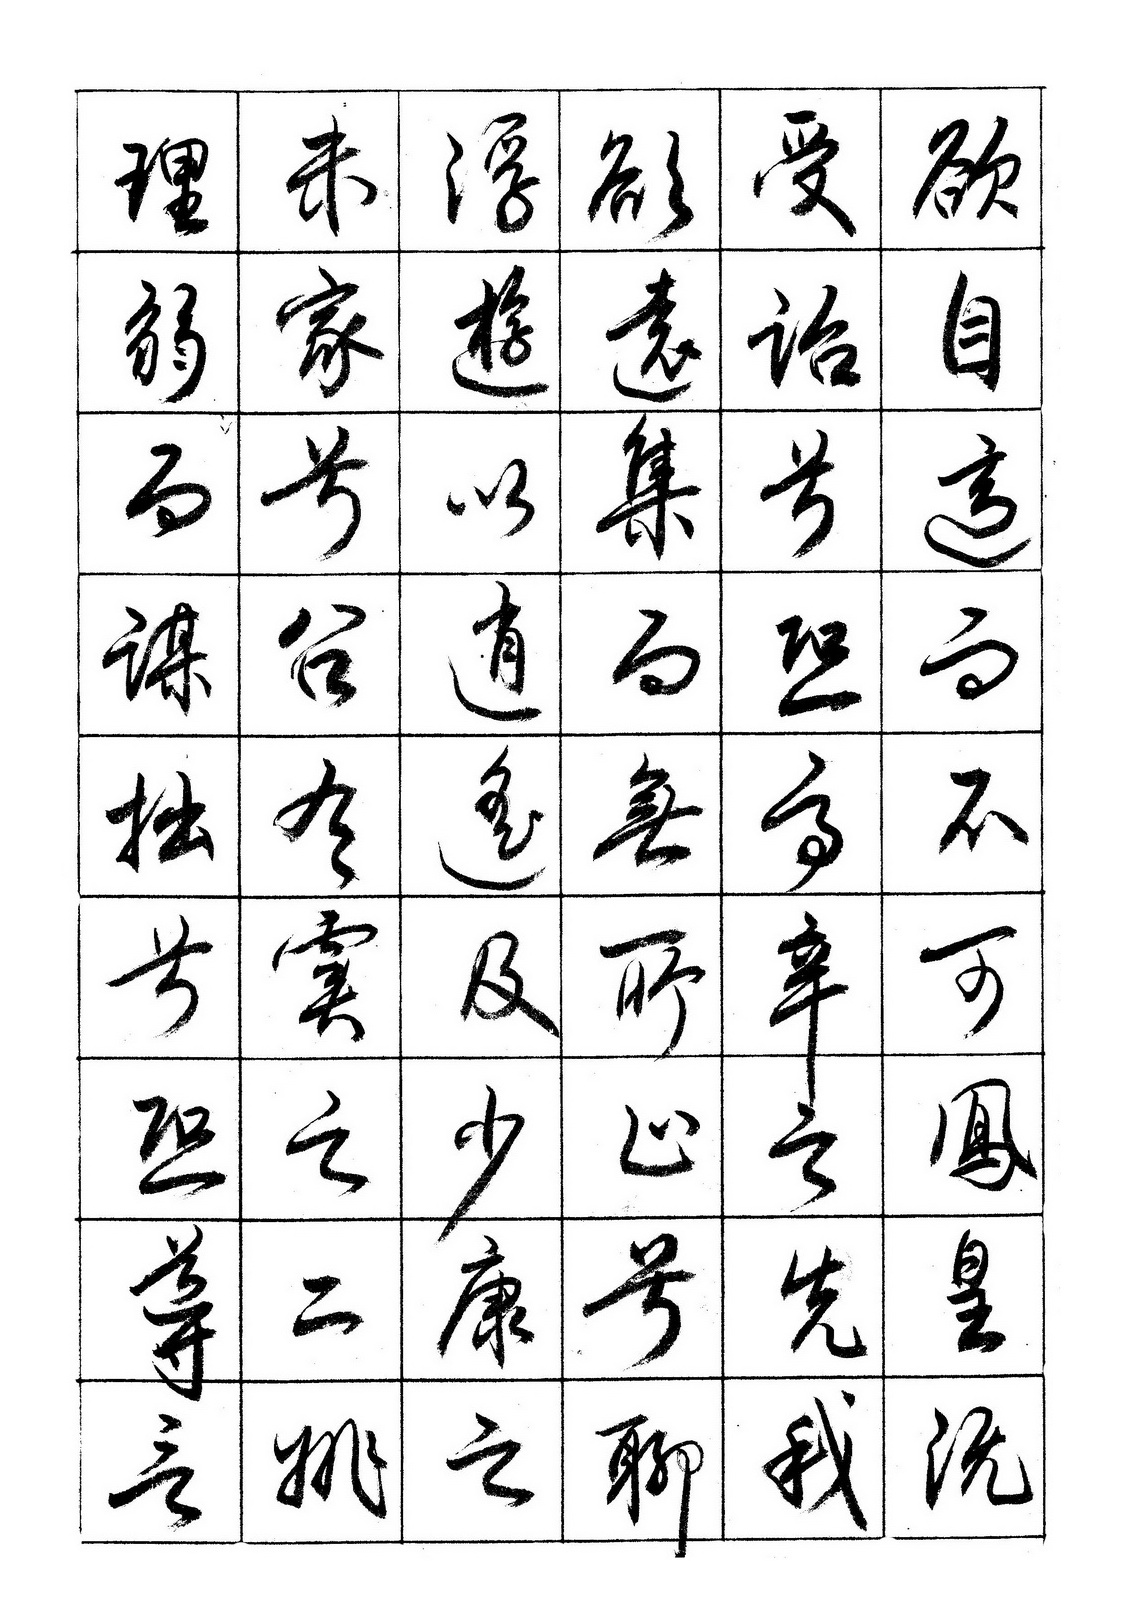 欲自適而不可鳳皇既
受詒兮恐高辛之先我
欲遠集而無所止兮聊
浮遊以逍遙及少康之
未家兮留有虞之二姚
理弱而謀拙兮恐導言